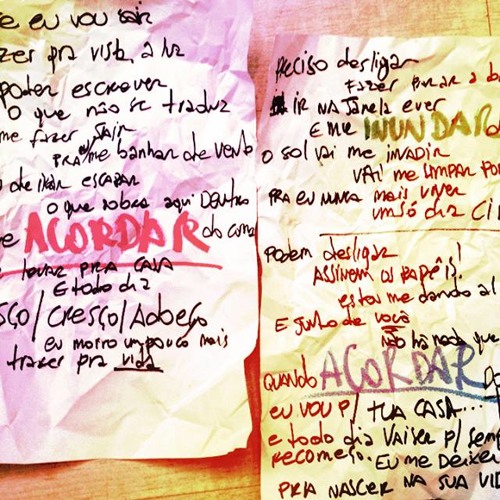 e eu vou sair
zer pra vista, a luz
poder escrever
o que não se traduz
me fazer sair
pra me banhar de vento
de escapar
o que sobra aqui dentro
e ACORDAR do coma
levar pra casa
E todo dia
Cresço/Adoeço
eu morro um pouco mais
trazer pra vida
Preciso desligar
fazer parar a
ir na janela ver
E me INUNDAR
o sol vai me invadir
vai me limpar por
pra eu nunca mais viver
um só dia
Podem desligar
Assinem os papéis!
estou me dando al
E junto de você
não há nada que
QUANDO ACORDAR
eu vou p/ tua casa...
e todo dia vai ser p/ sem
recomeço. Eu me deixei
pra nascer na sua vid